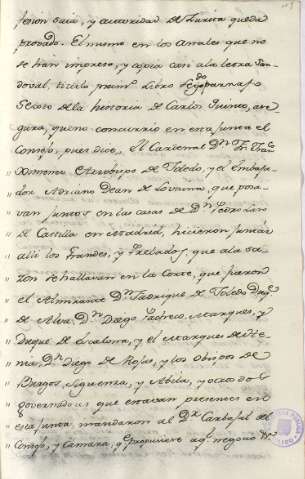 fesion suia, y autoridad de Zurita queda
provado. El mismo en los Anales que no
se han impreso, y copia casi a la letra San-
doval, titulo primº Libro segdo parrafo
de la historia de Carlos Quinto, ase-
gura, que no concurrio en esta junta el
Consejo, pues dice, El Cardenal Dn Fr. Franco
Ximenez Arzobispo de Toledo, y el Embaja-
dor Adriano Dean de Lovaina, que posa-
" van juntos en las casas de Dn Pedro Laso
" de Castilla en Madrid, hicieron juntar
" alli los Grandes, y Prelados, que a la sa-
" zon se hallavan en la Corte, que fueron
" el Almirante Dn Fadrique de Toledo Duqe
" de Alva, Dn Diego Pacheco, Marques, y
" Duque de Escalona, y el Marques de De-
" nia, Dn Diego de Rojas, y los Obispos de
" Burgos, Siguenza, y Abila, y otros
" governadores que estavan presentes en
" esta junta, mandaron al Dr Carbajal del
" Consejo, y Camara, qe propusiere aql negocio